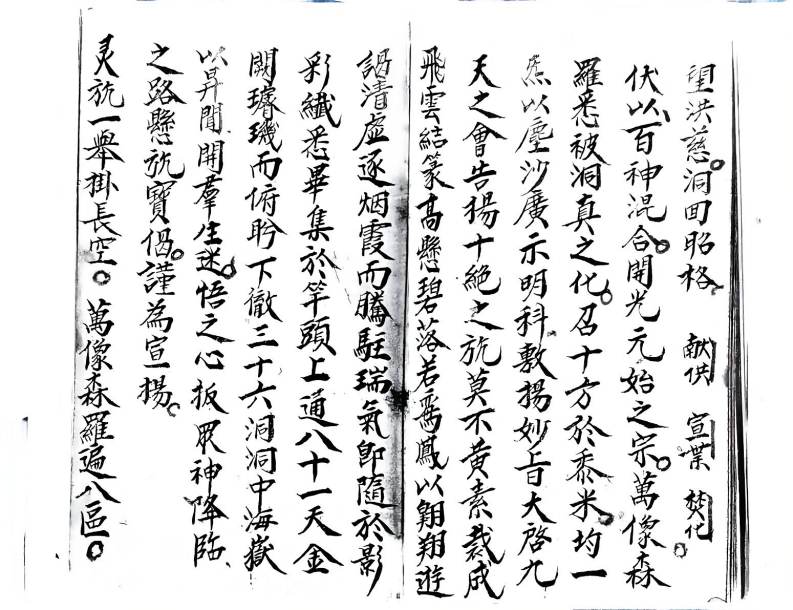 望洪慈。洞回昭格。 献供 宣葉 焚化。
伏以百神混合。開光元始之宗。萬像森
羅悉被洞真之化。召十方於黍米。均一
炁以塵沙廣示明科敷揚妙旨大啓九
天之會告揚十絶之旂莫不黄素裁成
飛雲結篆高懸碧落若鸞鳳以翱翔遊
謁清虛逐烟霞而騰駐瑞氣即隨於影
彩纖悉畢集於竿頭上通八十一天金
闕璿璣而俯盻下徹三十六洞洞中海嶽
以昇聞開羣生迷。悟之心扳眾神降臨
之路懸旂寶偈。謹為宣揚。
灵旂一舉掛長空。萬像森羅遍八區。